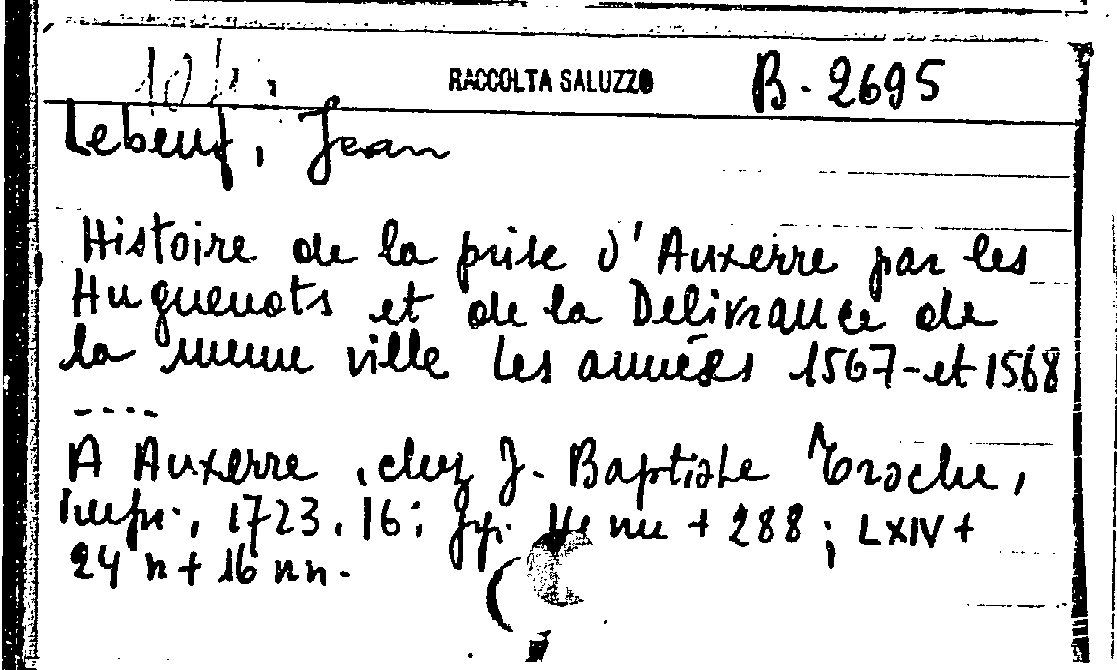 RACCOLTA SALUZZO B. 2695
Lebeuf, Jean
Histoire de la prise d'Auxerre par les
Huguenots et de la Delivrance de
la meme ville les années 1567-et 1568
----
A Auxerre, chez J. Baptiste Troche,
Impr., 1723. 16: pp. nn + 288; LXIV +
24 n + 16 nn.